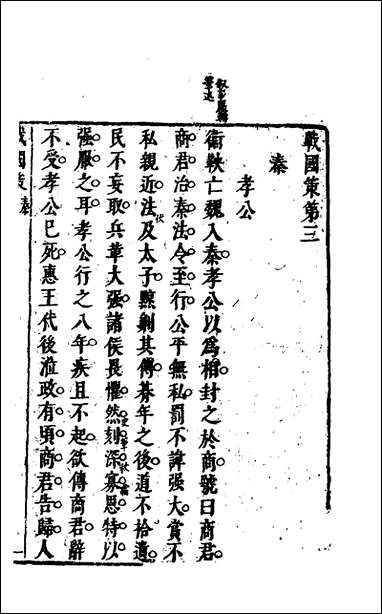 戰國策第三
秦
孝公
衛鞅亡魏入秦孝公以爲相封之於商號曰商君
商君治秦法令至行公平無私罰不諱强大賞不
私親近法及太子黥劓其傅朞年之後道不拾遺
民不妄取兵革大强諸侯畏懼然刻深寡恩特以
强服之耳孝公行之八年疾且不起欲傳商君辭
不受孝公已死惠王代後蒞政有頃商君告歸人
戰國策 秦